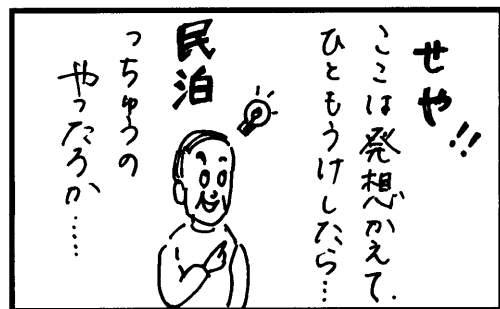 せや!!
ここは発想かえて
ひともうけしたら…
民泊
っちゅうの
やったろか……